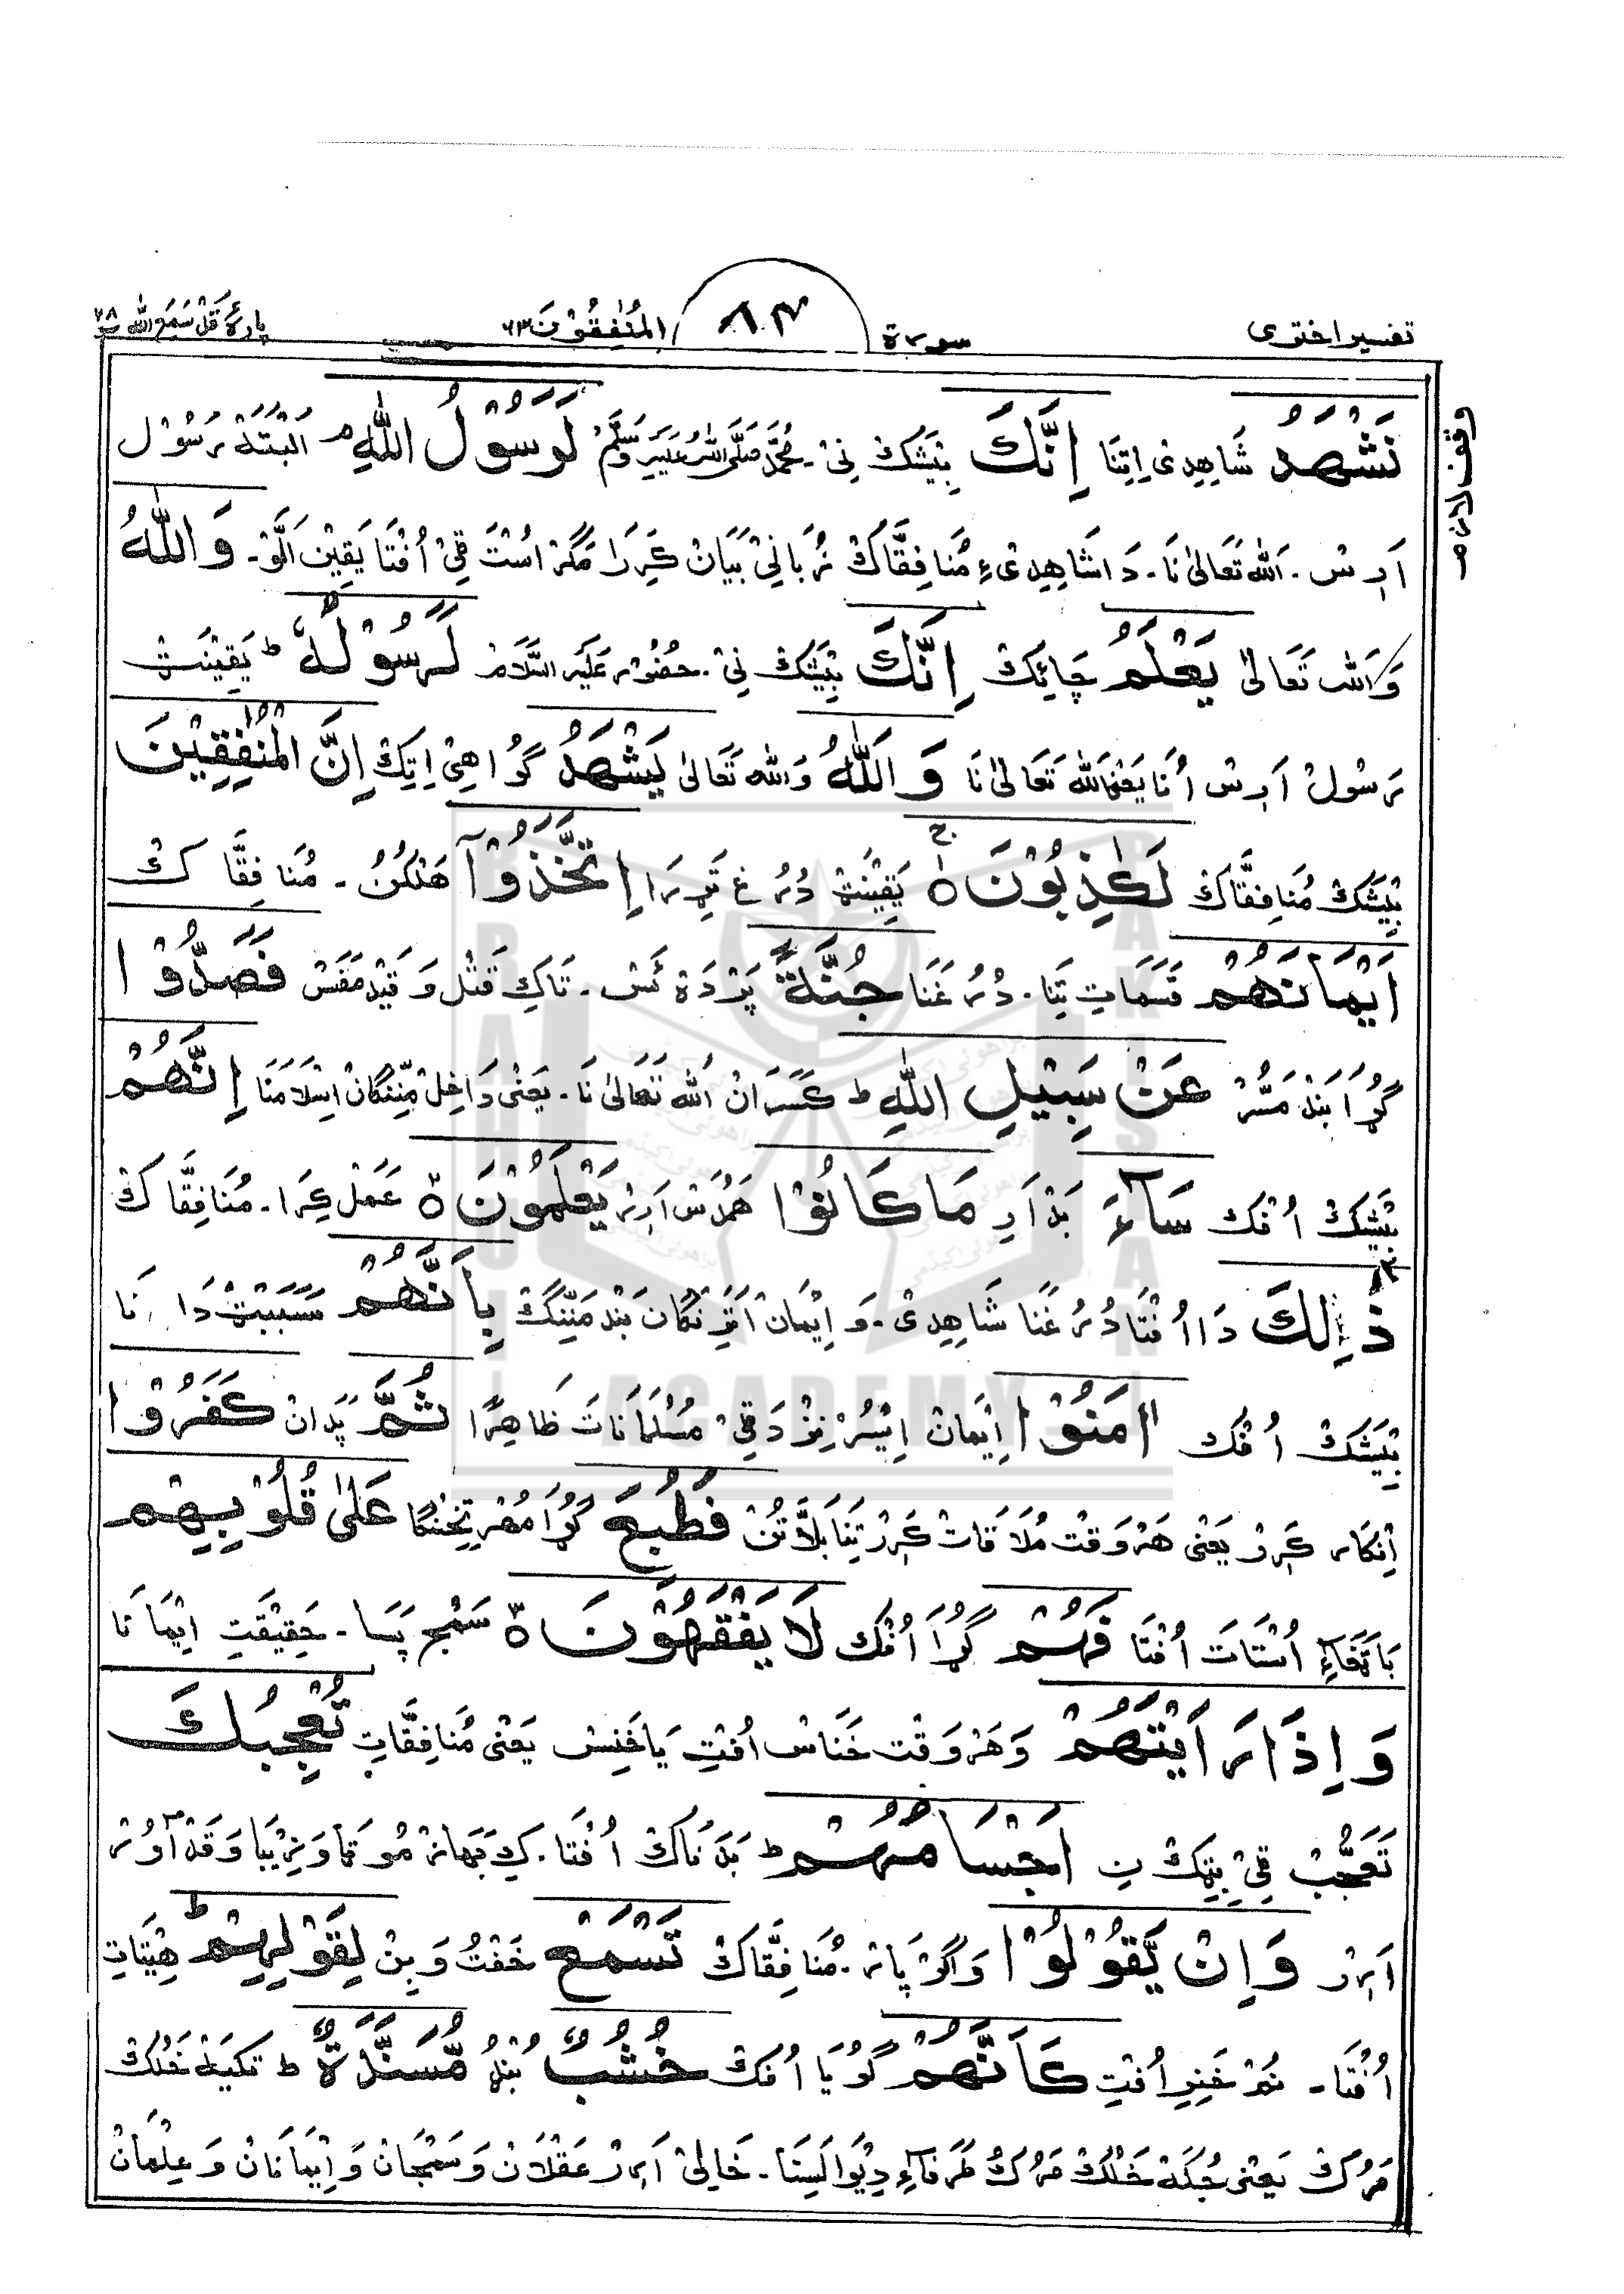 تفسير اختری سورة ٨٠٣ المُنٰفِقُوْنَ ٦٣ پارۀ قَدْ سَمِعَ اللّٰه ٢٨
وقف لازم
نَشْهَدُ شَاهِدِی اِتِنَا اِنَّكَ بِيْشَك نِیْ - مُحَمَّد صَلَّی اللّٰهُ عَلَيْهِ وَسَلَّمْ لَرَسُوْلُ اللّٰهِ م اَلْبَتَّة رَسُوْل
اَرِسْ - اَللّٰه تَعَالیٰ نَا - دَا شَاهِدِیءِ مُنَافِقَّاكْ زُبَانِیْ بَيَانْ كَرِرَا مَگَرْ اُسْتَ قِیْ اُفْتَا يَقِيْن اَلَّوْ - وَاللّٰهُ
وَاَللّٰه تَعَالیٰ يَعْلَمُ چَائِكْ اِنَّكَ بِيْشَكْ نِیْ - حضُوْر عَلَيْه السَّلَامْ لَرَسُوْلُهٗ ط يَقِيْنَتْ
رَسُوْلْ اَرِسْ اُنَا يَعْنِی اللّٰه تَعَالیٰ نَا وَاللّٰهُ وَاللّٰه تَعَالیٰ يَشْهَدُ گُوَاهِیْ اِتِكْ اِنَّ الْمُنٰفِقِيْنَ
بِيْشَكْ مُنَافِقَّاكْ لَكٰذِبُوْنَ ٥ يَقِيْنَتْ دُرُغ تِرِرَا اِتَّخَذُوْآ هَلْكُنُ - مُنَافِقَّاكْ
اَيْمَانَهُمْ قَسَمَاتِ تِنَا - دُرُغَنَا جُنَّةً پَرْدَهْ ئَس - تَاكِ قَتْل وَ قَيْد مَفَسْ فَصَدُّوْا
گُڑَا بَنْد مَسُّرْ عَنْ سَبِيْلِ اللّٰهِ ط كَسَرَانْ اَللّٰه تَعَالیٰ نَا - يَعْنِی دَاخِلْ مَنِّنْگَانْ اِسْلَامَنَا اِنَّهُمْ
بِيْشَكْ اُفْك سَآءَ بَدْ اَرِ مَا كَانُوْا هَمُدَس اَرِرْ يَعْمَلُوْنَ ٥ عَمَلْ كِرَا - مُنَافِقَّاكْ
ذٰلِكَ دَا اُفْتَا دُرُغَنَا شَاهِدِی - وَ اِيْمَانْ اَتِرْنَگَان بَنْد مَنِّنْگ بِاَنَّهُمْ سَبَبَتْ دَا نَا
بِيْشَكْ اُفْك اٰمَنُوْا اِيْمَانْ اِيْسُرْ نِزْدَ قِیْ مُسْلمَانَاتَ ظَاهِرًا ثُمَّ پَدَانْ كَفَرُوْا
اِنْكَار كَرِرْ يَعْنِی هَرْ وَقْت مُلَاقَاتْ كَرِرْ تِنَا بَلَّا تُنْ فَطُبِعَ گُڑَا مُهْر تِخِنْگَا عَلٰی قُلُوْبِهِمْ
بَاتَغَاءِ اُسْتَاتَ اُفْتَا فَهُمْ گُڑَا اُفْك لَا يَفْقَهُوْنَ ٥ سَمْج پَسَا - حَقِيْقَتِ اِيْمَانَا
وَاِذَا رَاَيْتَهُمْ وَهَرْ وَقْت خَنَاسْ اُفْتِ يَا خَنِسْ يَعْنِی مُنَافِقَّاتِ تُعْجِبُكَ
تَعَجُّبْ قِیْ بِتِك نِ اَجْسَامُهُمْ ط بَدَنَاكْ اُفْتَا - كِ بَهَانْ مُوْتَا وَ زِيْبَا وَ قَدْ آوُرْ
اَرِرْ وَاِنْ يَّقُوْلُوْا وَاگَرْ پَارْ - مُنَافِقَّاكْ تَسْمَعْ خَفْتُ وَ بِنْ لِقَوْلِهِمْ ط هِيْتَاتِ
اُفْتَا - نُمْ خَنِرِ اُفْتِ كَاَنَّهُمْ گُوْيَا اُفْك خُشُبٌ بُنْد مُّسَنَّدَةٌ ط تكيَه خَلْك
مَرُكْ يَعْنِی جُكَه خَلْك مَرُكْ طَرْفَاءِ دِيْوَالَسِنَا - خَالِیْ اَرِرْ عَقْلَانْ وَ سَمْجَانْ وَ اِيْمَانَانْ وَ عِلْمَانْ